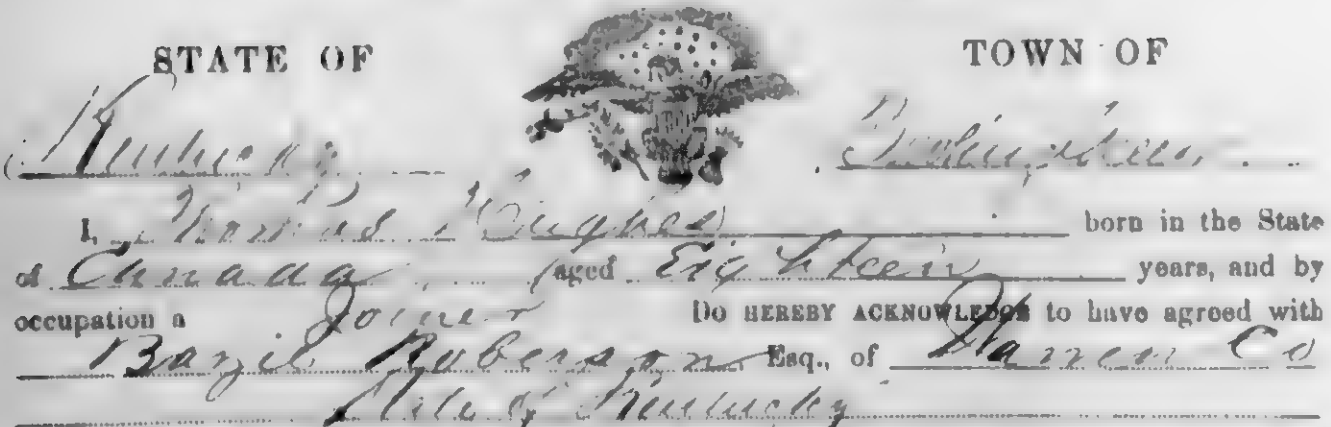 STATE OF TOWN OF
Kentucky
I, Thomas Hughes born in the State
of Canada aged Eighteen years, and by
occupation a Joiner Do HEREBY ACKNOWLEDGE to have agreed with
Bazil Roberson Esq., of Warren Co
State of Kentucky